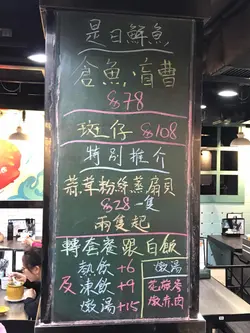 是日鮮魚
倉魚,盲曹
$78
斑仔 $108
特別推介
蒜茸粉絲蒸扇貝
$28一隻
兩隻起
轉套餐跟白飯
熱飲+6
及凍飲+9
燉湯+15
燉湯
花旗參
燉赤肉